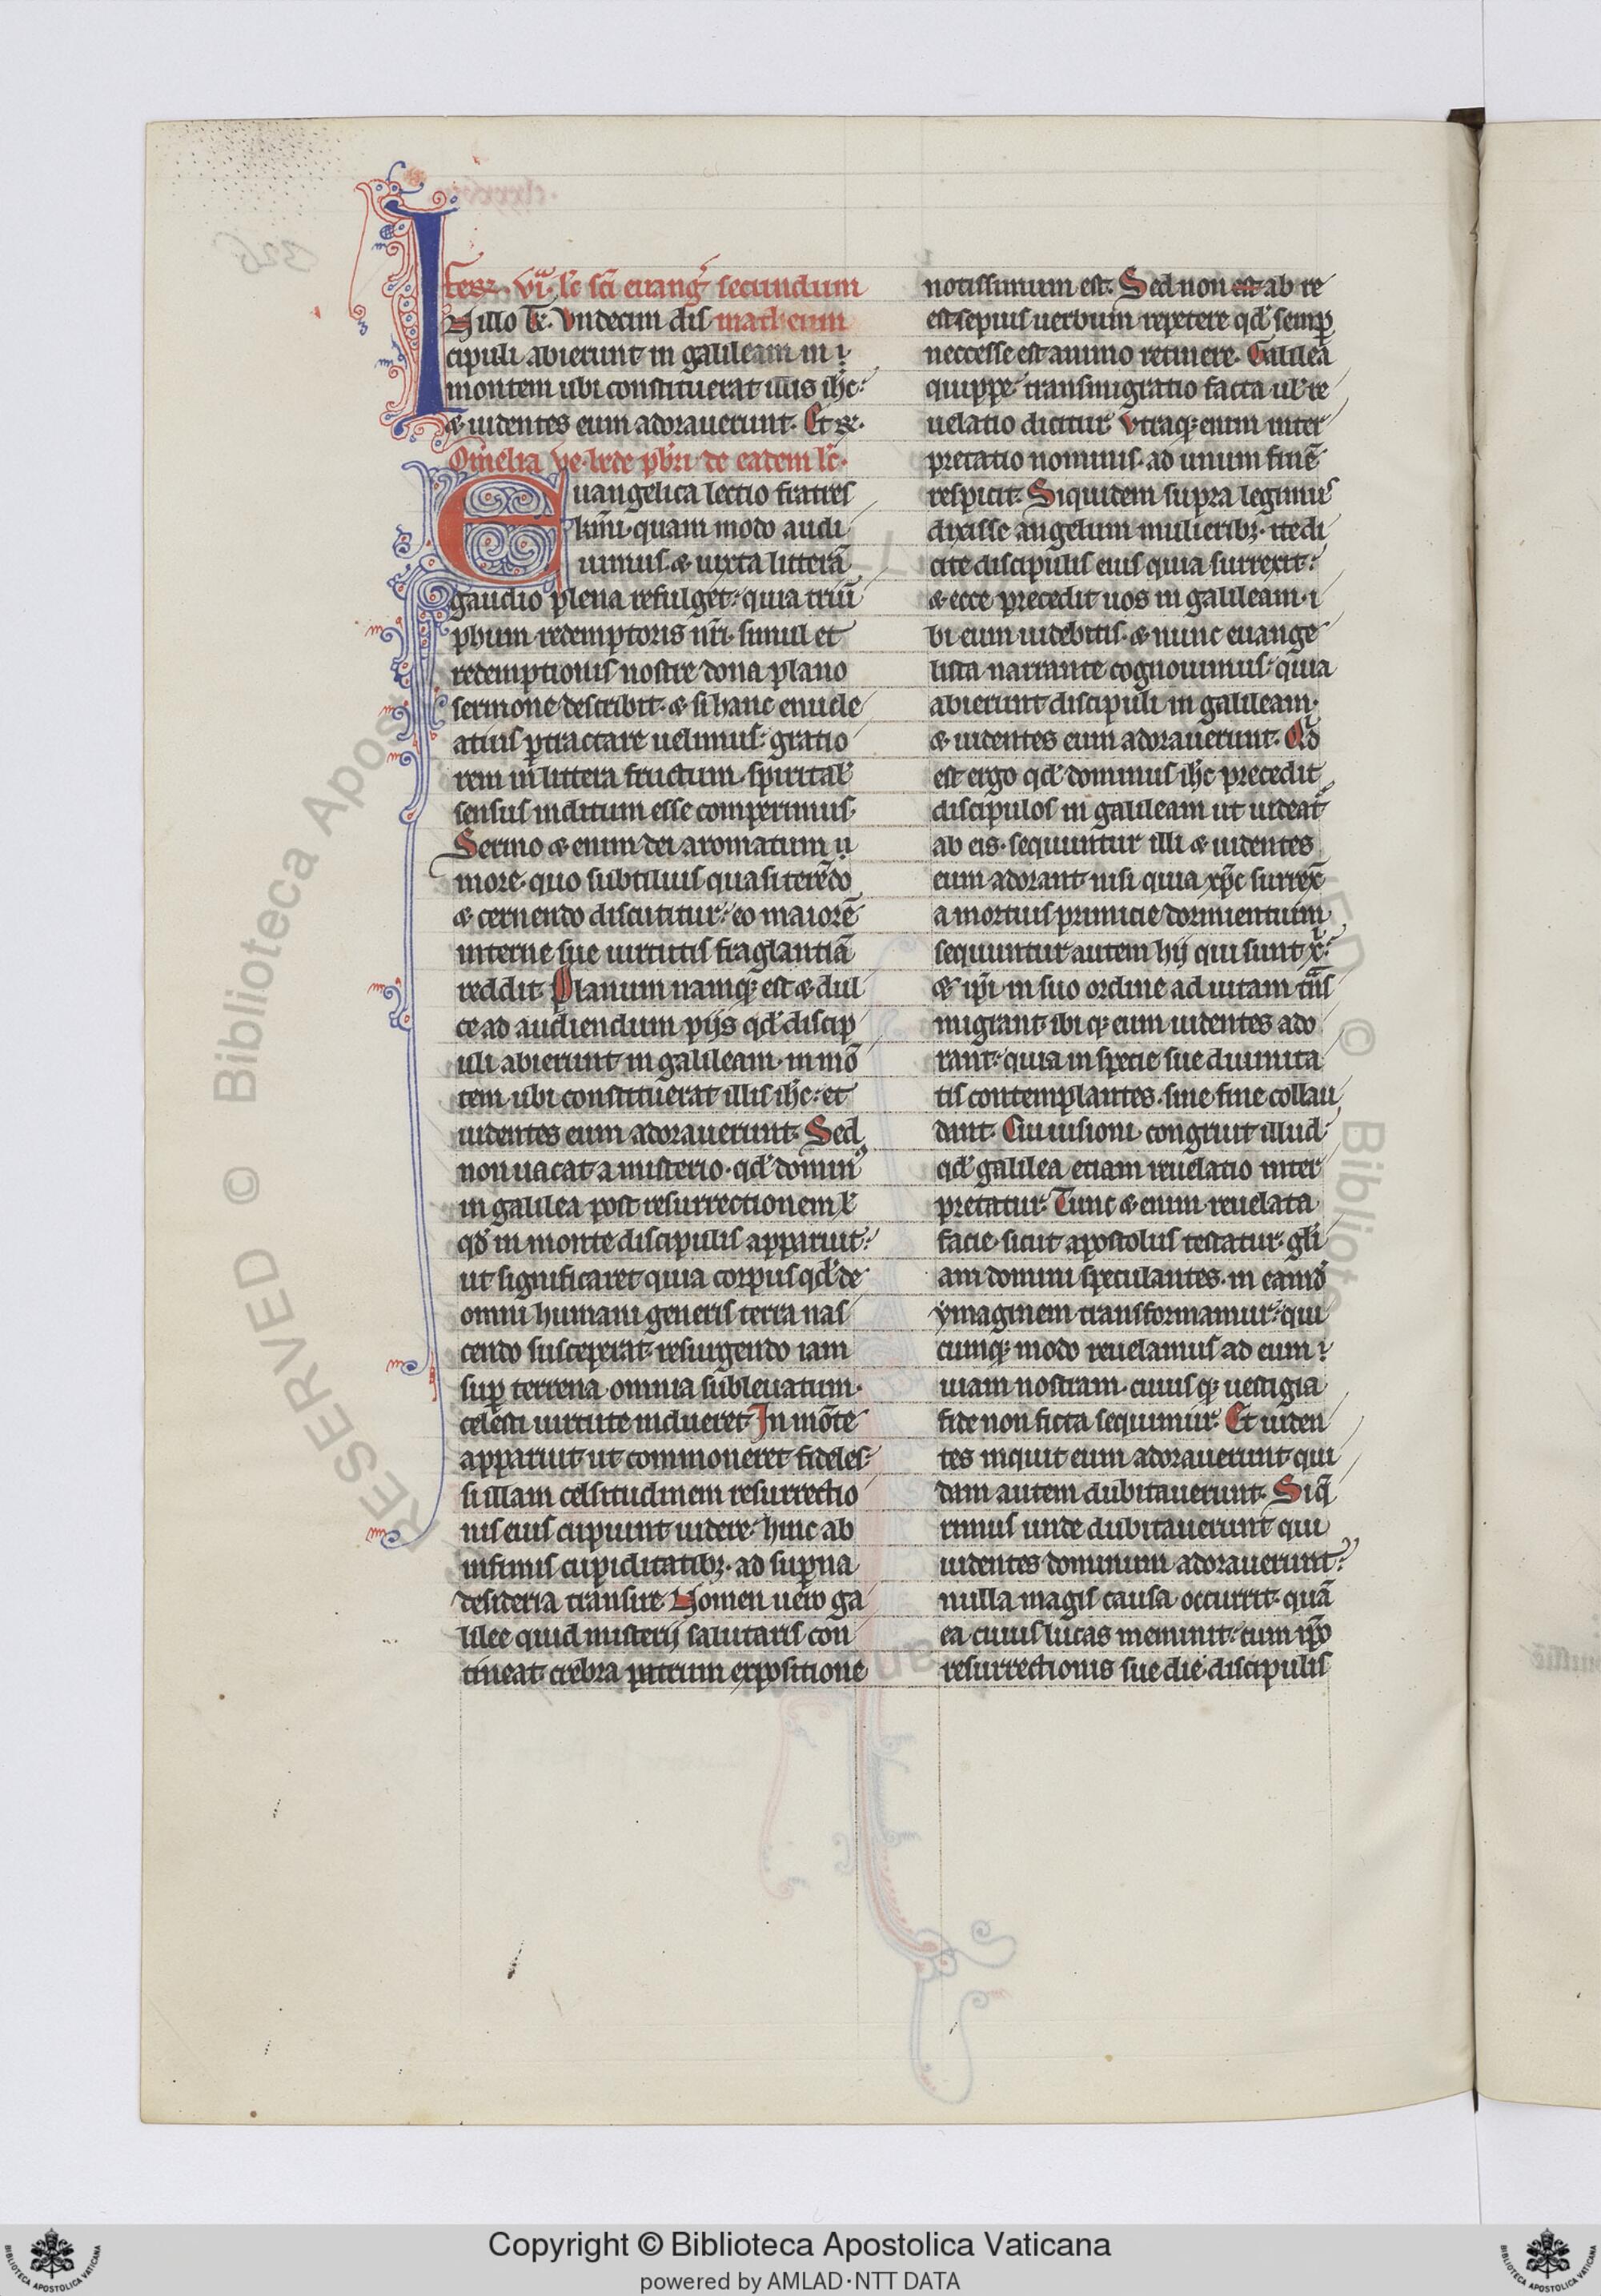 fer. vi. lc sci euang secundum
In illo tr. Vndecim dis matheum
cipuli abierunt in galileam in
montem ubi constituerat illis ihc:
& uidentes eum adorauerunt. Et
Omelia ve. bede pbri de eadem lc.
Euangelica lectio fratres
kmi. quam modo audi
uimus. & iuxta litterā
gaudio plena refulget: quia triū
phum redemptoris nri. simul et
redemptionis nostre dona plano
sermone describit. & si hanc enucle
atius ptractare uelimus: gratio
rem in littera fructum. spirital
sensus inditum esse comperimus.
Sermo & enim dei aromatum ii
more. quo subtilius quasi terēdo
& cernendo discutitur: eo maiorē
interne sue uirtutis fraglantiā
reddit. Planum namq; est & dul
ce ad audiendum pijs qd discip
uli abierunt in galileam. in mō
tem ubi constituerat illis ihc: et
uidentes eum adorauerunt. Sed
non uacat a misterio. qd domin9
in galilea post resurrectionem l
qd in monte discipulis apparuit:
ut significaret quia corpus qd de
omni humani generis terra nas
cendo susceperat. resurgendo iam
sup terrena omnia subleuatum.
celesti uirtute indueret. In mōte
apparuit ut commoneret fideles:
si illam celsitudinem resurrectio
nis eius cupiunt uidere. hinc ab
infimis cupiditatib;. ad supna
desideria transire. Nomen uero ga
lilee quid misterij salutaris con
tineat crebra patrum expositione
notissimum est. Sed non est ab re
est sepius uerbum repetere qd semp
neccesse est animo retinere. Galilea
quippe. transmigratio facta ul re
uelatio dicitur. Vtraq; enim inter
pretatio nominis. ad unum finē
respicit. Siquidem supra legimus
dixisse angelum mulierib;. ite di
cite discipulis eius quia surrexit:
& ecce precedit uos in galileam. i
bi eum uidebitis. & nunc euange
lista narrante cognouimus: quia
abierunt discipuli in galileam.
& uidentes eum adorauerunt. Qd
est ergo qd dominus ihc precedit
discipulos in galileam ut uideat
ab eis. sequuntur illi & uidentes
eum adorant. nisi quia xpc surrex
a mortuis primicie dormientium
sequuntur autem hij qui sunt x:
& ipi in suo ordine ad uitam tns
migrant. ibi q; eum uidentes ado
rant. quia in specie sue diuinita
tis contemplantes. sine fine collau
dant. Cui uisioni congruit illud
qd galilea etiam reuelatio inter
pretatur. Tunc & enim reuelata
facie. sicut apostolus testatur. gli
am domini speculantes. in eamd
ymaginem transformamur: qui
cumq; modo reuelamus ad eum
uiam nostram. cuius q; uestigia
fide non ficta sequimur. Et uiden
tes inquit eum adorauerunt qui
dam autem dubitauerunt. Si q̄
rimus unde dubitauerunt qui
uidentes dominum adorauerunt?
nulla magis causa occurrit. quā
ea cuius lucas meminit. cum ipo
resurrectionis sue die. discipulis
RESERVED © Biblioteca Apos
© Bibliote
Copyright © Biblioteca Apostolica Vaticana
powered by AMLAD·NTT DATA